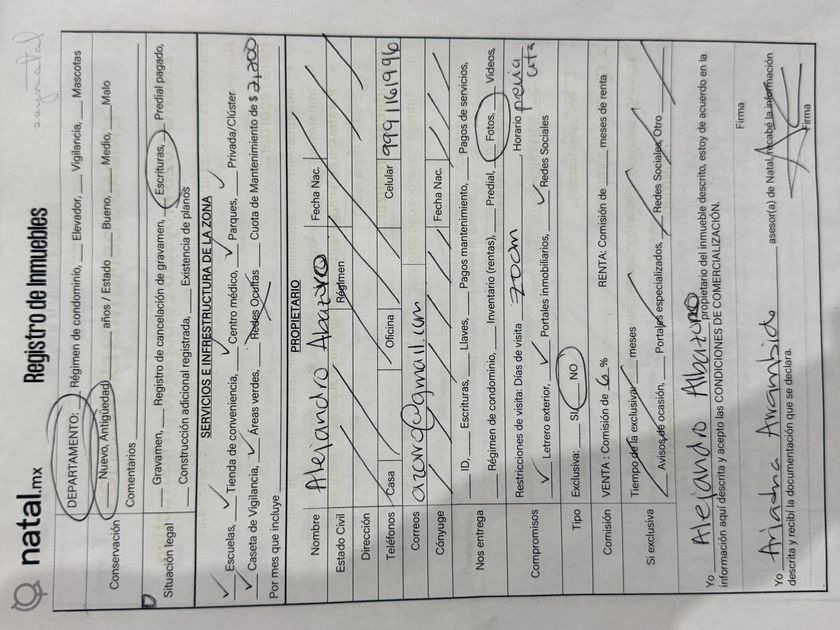 natal.mx
Registro de Inmuebles
DEPARTAMENTO: ___ Régimen de condominio, ___ Elevador, ___ Vigilancia, ___ Mascotas
Conservación
___ Nuevo, Antigüedad ___ años / Estado ___ Bueno, ___ Medio, ___ Malo
Comentarios
Situación legal
___ Gravamen, ___ Registro de cancelación de gravamen, ___ Escrituras, ___ Predial pagado,
___ Construcción adicional registrada, ___ Existencia de planos
SERVICIOS E INFRESTRUCTURA DE LA ZONA
✓ Escuelas, ✓ Tienda de conveniencia, ✓ Centro médico, ✓ Parques, ✓ Privada/Clúster
✓ Caseta de Vigilancia, ✓ Áreas verdes, ___ Redes Ocultas ___ Cuota de Mantenimiento de $ 2,200
Por mes que incluye
PROPIETARIO
Nombre Alejandro Fecha Nac.
Estado Civil Régimen
Dirección
Teléfonos Casa Oficina Celular 9991161996
Correos @gmail.com
Cónyuge Fecha Nac.
Nos entrega
___ ID, ___ Escrituras, ___ Llaves, ___ Pagos mantenimiento, ___ Pagos de servicios,
___ Régimen de condominio, ___ Inventario (rentas), ___ Predial, ___ Fotos, ___ Vídeos,
Restricciones de visita: Días de visita , Horario previa cita
Compromisos
✓ Letrero exterior, ✓ Portales inmobiliarios, ✓ Redes Sociales
Tipo Exclusiva: ___ SI, ___ NO
Comisión VENTA : Comisión de 6 % RENTA: Comisión de ___ meses de renta
Si exclusiva
Tiempo de la exclusiva: ___ meses
___ Avisos de ocasión, ___ Portales especializados, ___ Redes Sociales, Otro
Yo Alejandro propietario del inmueble descrito, estoy de acuerdo en la
información aquí descrita y acepto las CONDICIONES DE COMERCIALIZACIÓN.
Firma
Yo Ariadna Arrambide asesor(a) de Natal, recabé la información
descrita y recibí la documentación que se declara.
Firma